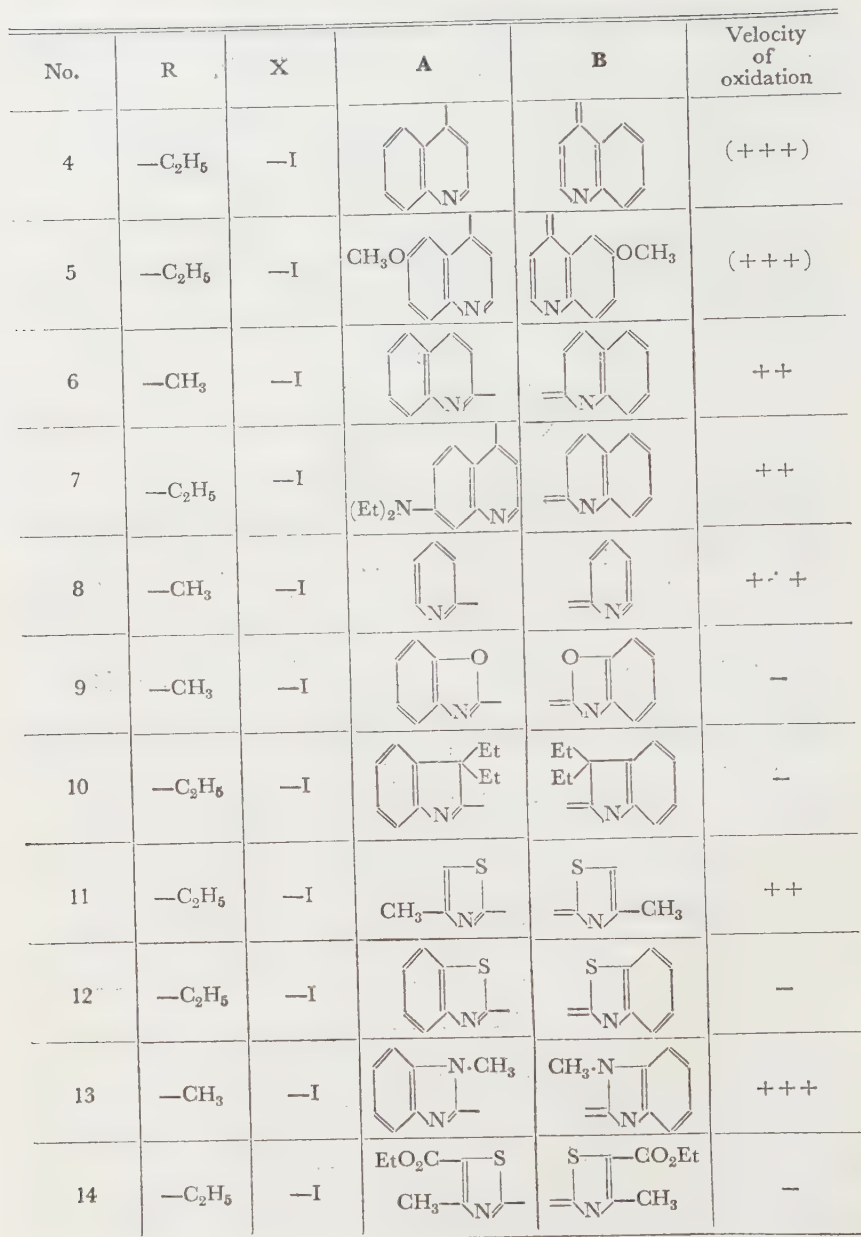 No. R X A B Velocity of oxidation
4 —C₂H₅ —I N N (+++)
5 —C₂H₅ —I CH₃O N OCH₃ N (+++)
6 —CH₃ —I N N ++
7 —C₂H₅ —I (Et)₂N— N N ++
8 —CH₃ —I N N ++
9 —CH₃ —I O N O N −
10 —C₂H₅ —I Et Et N Et Et N −
11 —C₂H₅ —I S CH₃— N S N —CH₃ ++
12 —C₂H₅ —I S N S N −
13 —CH₃ —I N·CH₃ N CH₃·N N +++
14 —C₂H₅ —I EtO₂C— S CH₃— N S —CO₂Et N —CH₃ −